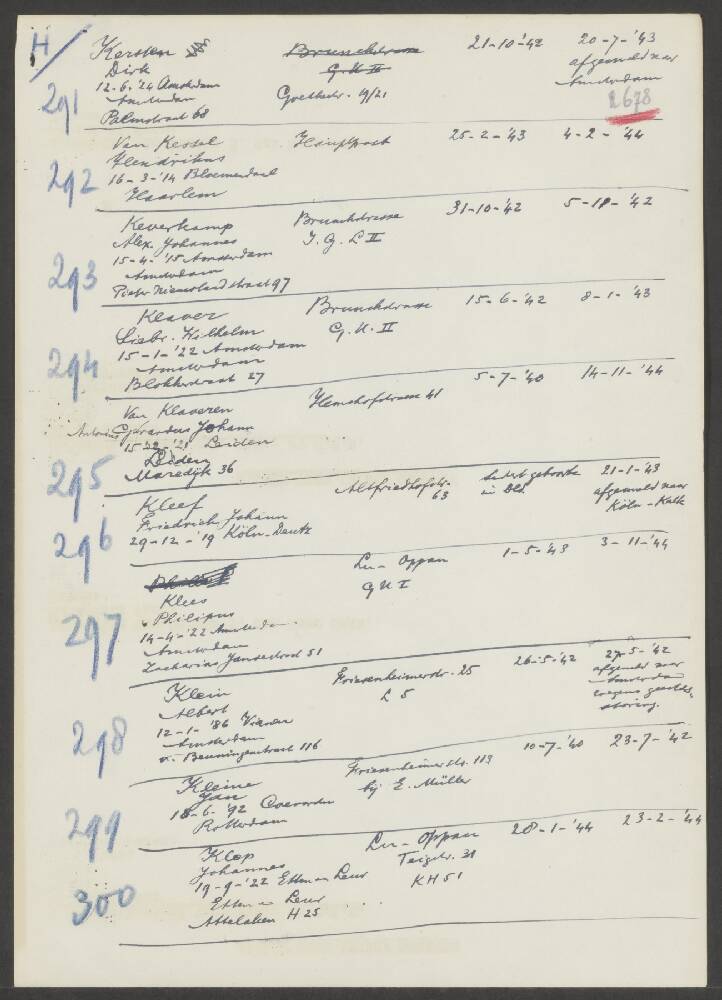 H
291
Kersten
Brunckstrasse
21-10-'42
20-7-'43
Dirk
G.U. II
afgemeld naar
12-6-'24 Amsterdam
Goethestr. 19/21
Amsterdam
Amsterdam
2678
Palmstraat 68
292
Van Kessel
Hauptpost
25-2-'43
4-2-'44
Hendrikus
16-3-'14 Bloemendaal
Haarlem
293
Keverkamp
Brunckstrasse
31-10-'42
Alex Johannes
J.G.L II
15-4-'15 Amsterdam
Amsterdam
Pieter Nieuwlandstraat 97
294
Klaver
Brunckstrasse
15-6-'42
8-1-'43
Siebr. Wilhelm
G.U. II
15-1-'22 Amsterdam
Amsterdam
27
295
Van Klaveren
Hemshofstrasse 41
5-7-'40
14-11-'44
Antonius Gerardus Johann
Leiden
Leiden
Maredijk 36
296
Kleef
Altfriedhofstr. 63
laatst geboekte in Bld.
21-1-'43
Friedrich Johann
afgemeld naar
29-12-'19 Köln-Deutz
Köln-Kalk
297
Klees
Lu-Oppau
1-5-'43
3-11-'44
Philipus
G U I
14-4-'22 Amsterdam
Amsterdam
Zacharias Jansestraat 51
298
Klein
Friesenheimerstr. 25
26-5-'42
27-5-'42
Albert
L 5
afgemeld naar
12-1-'86 Vianen
Amsterdam
Amsterdam
wegens
v. Beuningenstraat 116
storing.
299
Kleine
Friesenheimerstr. 113
10-7-'40
23-7-'42
Jan
bij E. Müller
18-6-'92 Coevorden
Rotterdam
300
Klop
Lu-Oppau
28-1-'44
23-2-'44
Johannes
31
19-9-'22 Etten en Leur
KH 51
Etten en Leur
Attelaken H 25